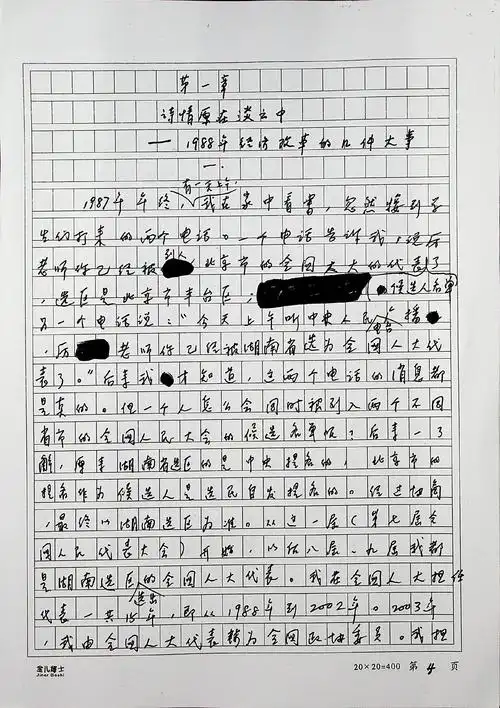 第一章
诗情原在淡云中
—1988年经济改革的几件大事
一.
有一天上午
1987年年终,我在家中看书,忽然接到学
生们打来的两个电话。一个电话告诉我,说厉
列入
老师你已经被北京市的全国人大的代表了
,选区是北京市丰台区;
候选人名单
另一个电话说:“今天上午听中央人民广播
电台
,厉老师你已经被湖南省选为全国人大代
表了。”后来我才知道,这两个电话的消息都
是真的。但一个人怎么会同时被列入两个不同
省市的全国人民大会的候选名单呢?后来一了
解,原来湖南省选区的是中央提名的,北京市的
提名作为候选人是选民自发提名的。经过协商
,最终以湖南选区为准。从这一届(第七届全
国人民代表大会)开始,以后八届、九届我都
是湖南选区的全国人大代表。我在全国人大担任
选出
代表一共15年,即从1988年到2002年。2003年
,我由全国人大代表转为全国政协委员。我担
金儿博士
Jiner Boshi
20×20=400 第 4 页